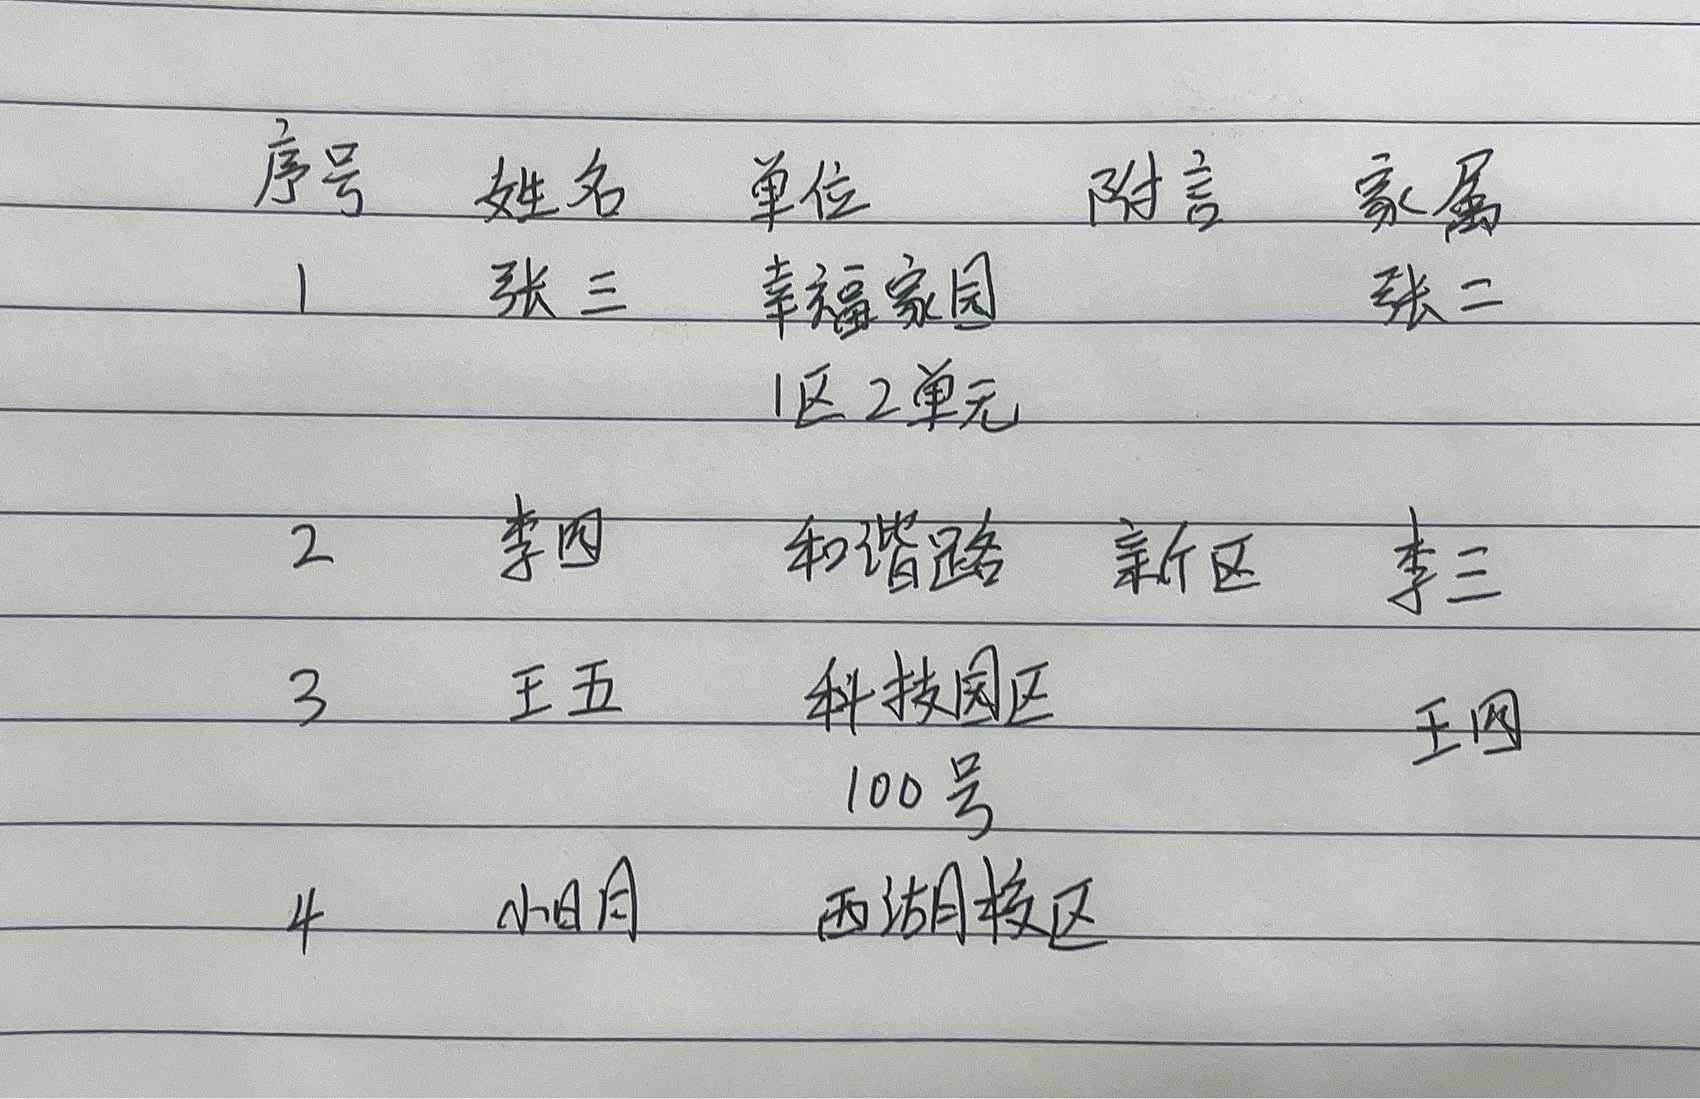 序号 姓名 单位 附言 家属
1 张三 幸福家园 张二
1区2单元
2 李四 和谐路 新区 李三
3 王五 科技园区 王四
100号
4 小明 西湖校区